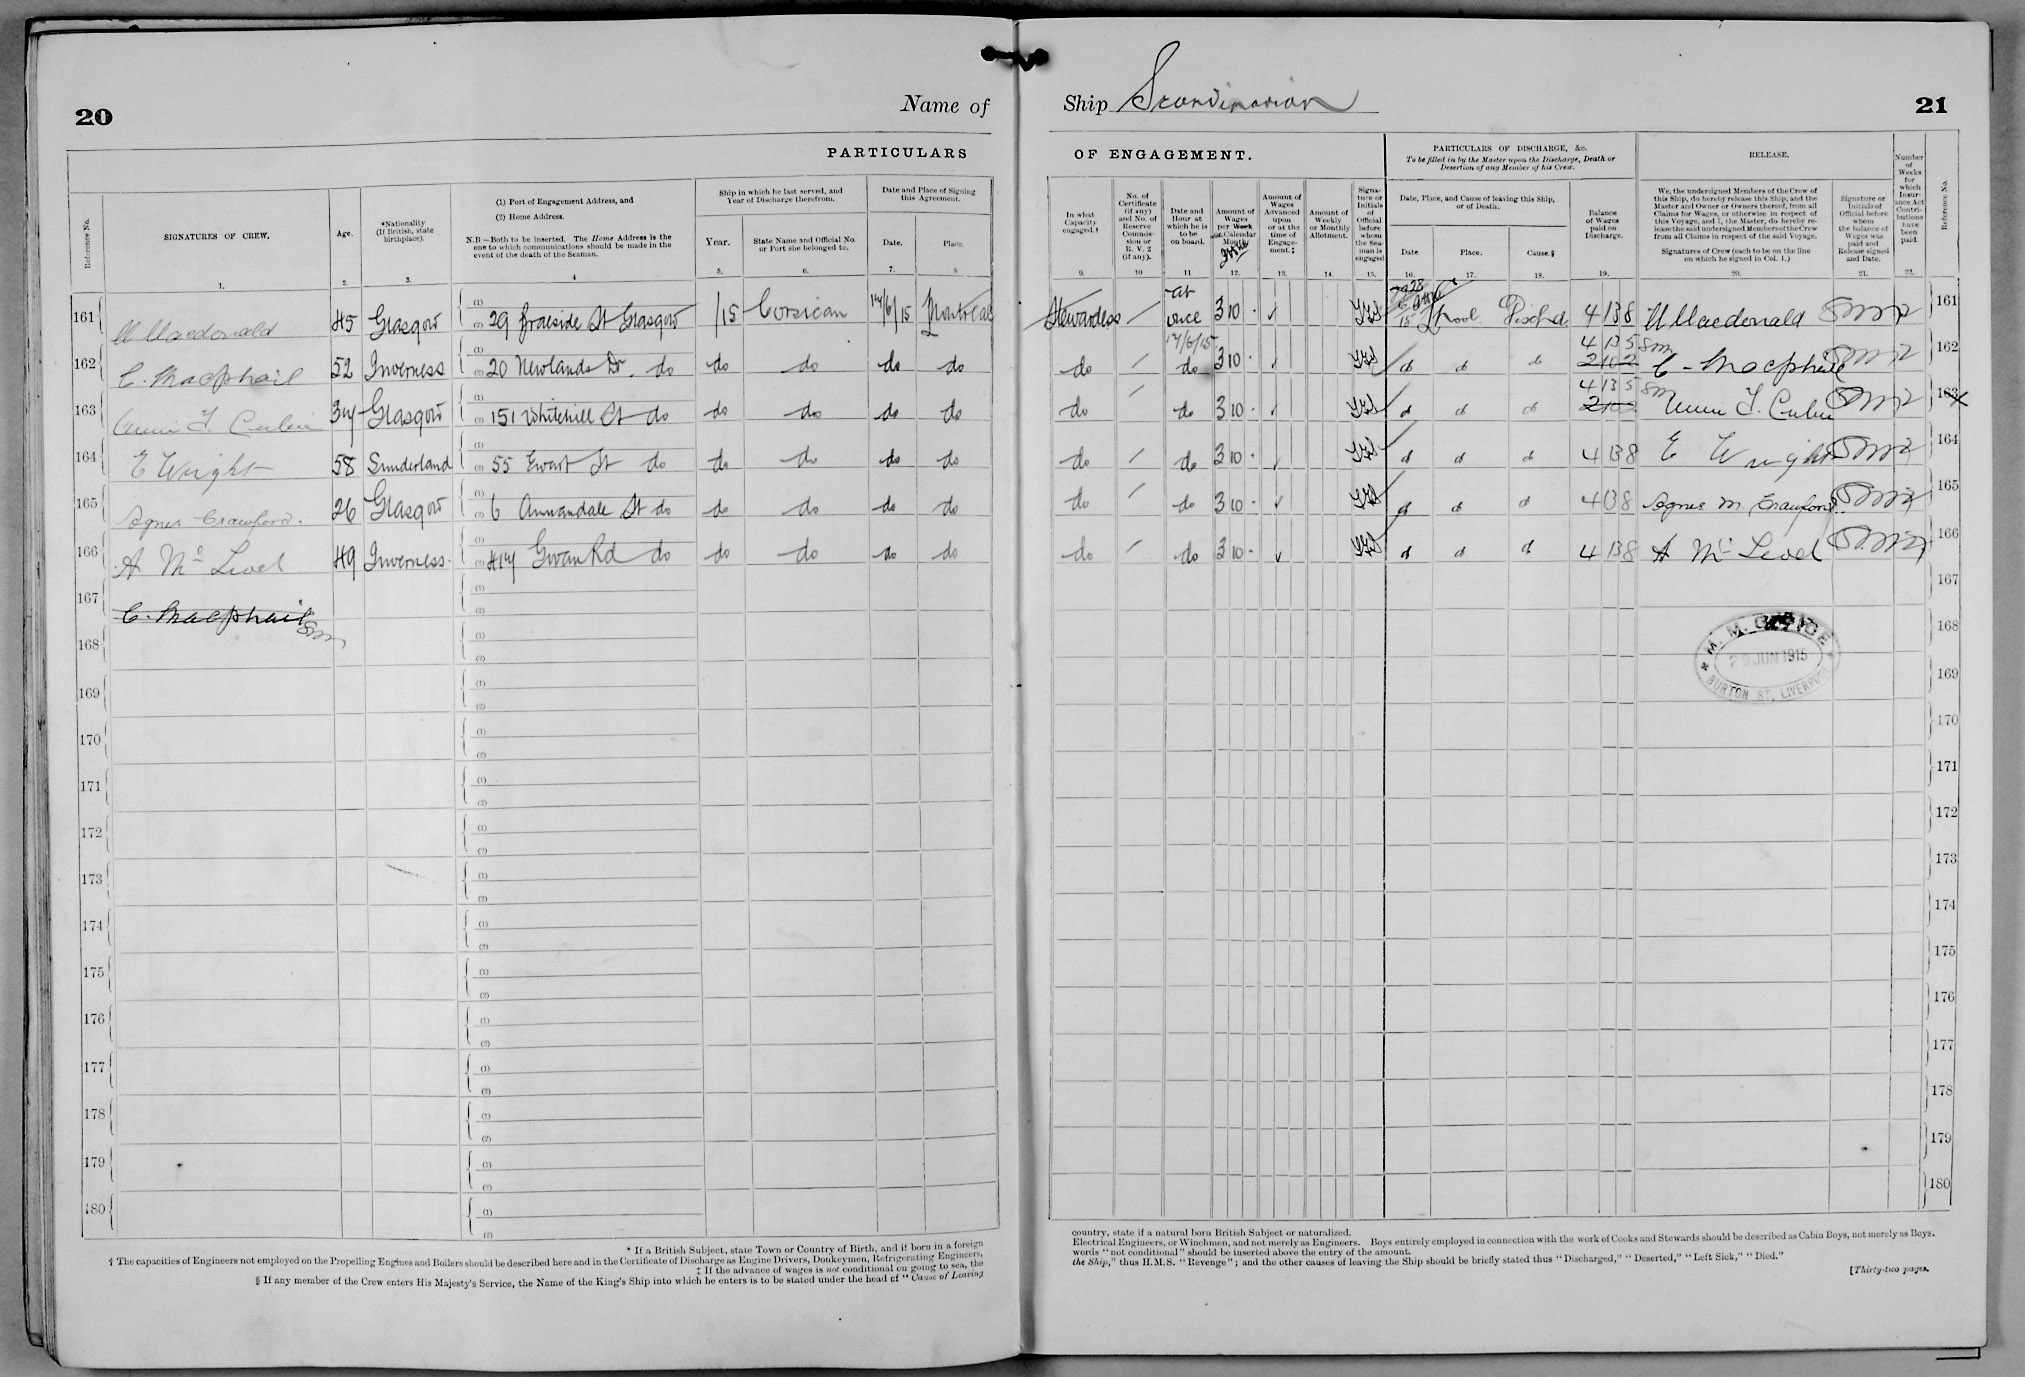 20
Name of
Ship Scandinavian
21
PARTICULARS
OF ENGAGEMENT.
PARTICULARS OF DISCHARGE, &c.
To be filled in by the Master upon the Discharge, Death or
Desertion of any Member of his Crew.
RELEASE.
Number of Weeks for which Insurance Act Contributions have been paid.
Reference No.
Reference No.
SIGNATURES OF CREW.
Age.
*Nationality
(If British, state birthplace).
(1) Port of Engagement Address, and
(2) Home Address.
N.B.—Both to be inserted. The Home Address is the
one to which communications should be made in the
event of the death of the Seaman.
Ship in which he last served, and
Year of Discharge therefrom.
Year.
State Name and Official No.
or Port she belonged to.
Date and Place of Signing
this Agreement.
Date.
Place.
In what Capacity engaged.†
No. of Certificate (if any) and No. of Reserve Commission or R. V. 2 (if any).
Date and Hour at which he is to be on board.
Amount of Wages per Week or Calendar Month.
Amount of Wages Advanced upon or at the time of Engagement.‡
Amount of Weekly or Monthly Allotment.
Signature or Initials of Official before whom the Seaman is engaged
Date, Place, and Cause of leaving this Ship,
or of Death.
Date.
Place.
Cause.§
Balance of Wages paid on Discharge.
We, the undersigned Members of the Crew of
this Ship, do hereby release this Ship, and the
Master and Owner or Owners thereof, from all
Claims for Wages, or otherwise in respect of
this Voyage, and I, the Master, do hereby release
the said undersigned Members of the Crew
from all Claims in respect of the said Voyage.
Signatures of Crew (each to be on the line
on which he signed in Col. 1.)
Signature or Initials of Official before whom the balance of Wages was paid and Release signed and Date.
1. 2. 3. 4 5. 6. 7. 8 9. 10 11 12. 13. 14. 15. 16. 17. 18. 19. 20. 21. 22.
161 Macdonald 45 Glasgow (1) (2) 29 Braeside St Glasgow /15 Corsican 14/6/15 Montreal Stewardess / at once 17/6/15 3 10 · 15 L'pool Disch'd 4 13 8 Macdonald 161
162 C. Macphail 52 Inverness (1) (2) 20 Newlands Dr. do do do do do do / do 3 10 · 4 13 5 2 10 2 C. Macphail 162
163 (1) 34 Glasgow (2) 151 Whitehill St do do do do do do / do 3 10 · 4 13 5 163
164 E Wright 58 Sunderland (1) (2) 55 Ewart St do do do do do do / do 3 10 · 4 13 8 E Wright 164
165 Agnes Crawford. 26 Glasgow (1) (2) 6 Annandale St do do do do do do / do 3 10 · 4 13 8 Agnes M. Crawford. 165
166 A McLeod 49 Inverness. (1) (2) 414 Govan Rd do do do do do do / do 3 10 · 4 13 8 A McLeod 166
167 C. Macphail (1) (2) 167
168 (1) (2) 168
169 (1) (2) 169
170 (1) (2) 170
171 (1) (2) 171
172 (1) (2) 172
173 (1) (2) 173
174 (1) (2) 174
175 (1) (2) 175
176 (1) (2) 176
177 (1) (2) 177
178 (1) (2) 178
179 (1) (2) 179
180 (1) (2) 180
M. M. OFFICE
28 JUN 1915
BURTON ST, LIVERPOOL
* If a British Subject, state Town or Country of Birth, and if born in a foreign
country, state if a natural born British Subject or naturalized.
† The capacities of Engineers not employed on the Propelling Engines and Boilers should be described here and in the Certificate of Discharge as Engine Drivers, Donkeymen, Refrigerating Engineers,
Electrical Engineers, or Winchmen, and not merely as Engineers. Boys entirely employed in connection with the work of Cooks and Stewards should be described as Cabin Boys, not merely as Boys.
‡ If the advance of wages is not conditional on going to sea, the
words "not conditional" should be inserted above the entry of the amount.
§ If any member of the Crew enters His Majesty's Service, the Name of the King's Ship into which he enters is to be stated under the head of "Cause of Leaving
the Ship," thus H.M.S. "Revenge"; and the other causes of leaving the Ship should be briefly stated thus "Discharged," "Deserted," "Left Sick," "Died."
[Thirty-two pages.